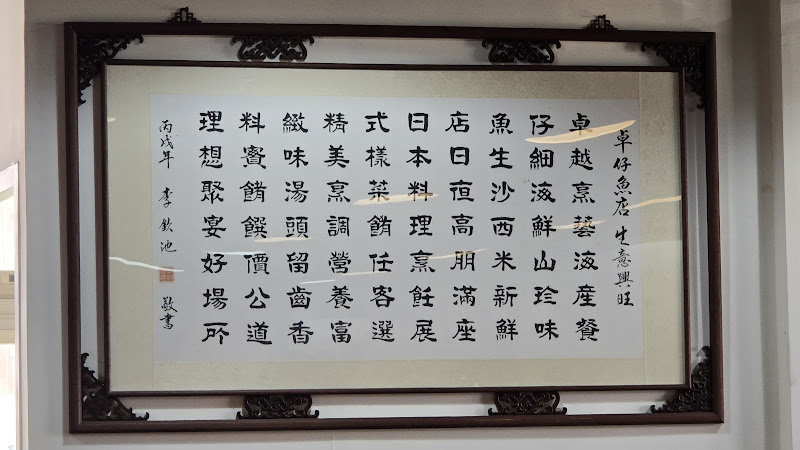 卓仔魚店 生意興旺
卓越烹藝海産餐
仔細海鮮山珍味
魚生沙西米新鮮
店日恒高朋滿座
日本料理烹飪展
式樣菜餚任客選
精美烹調營養富
緻味湯頭留齒香
料實餚饌價公道
理想聚宴好場所
丙戌年 李欽池 敬書